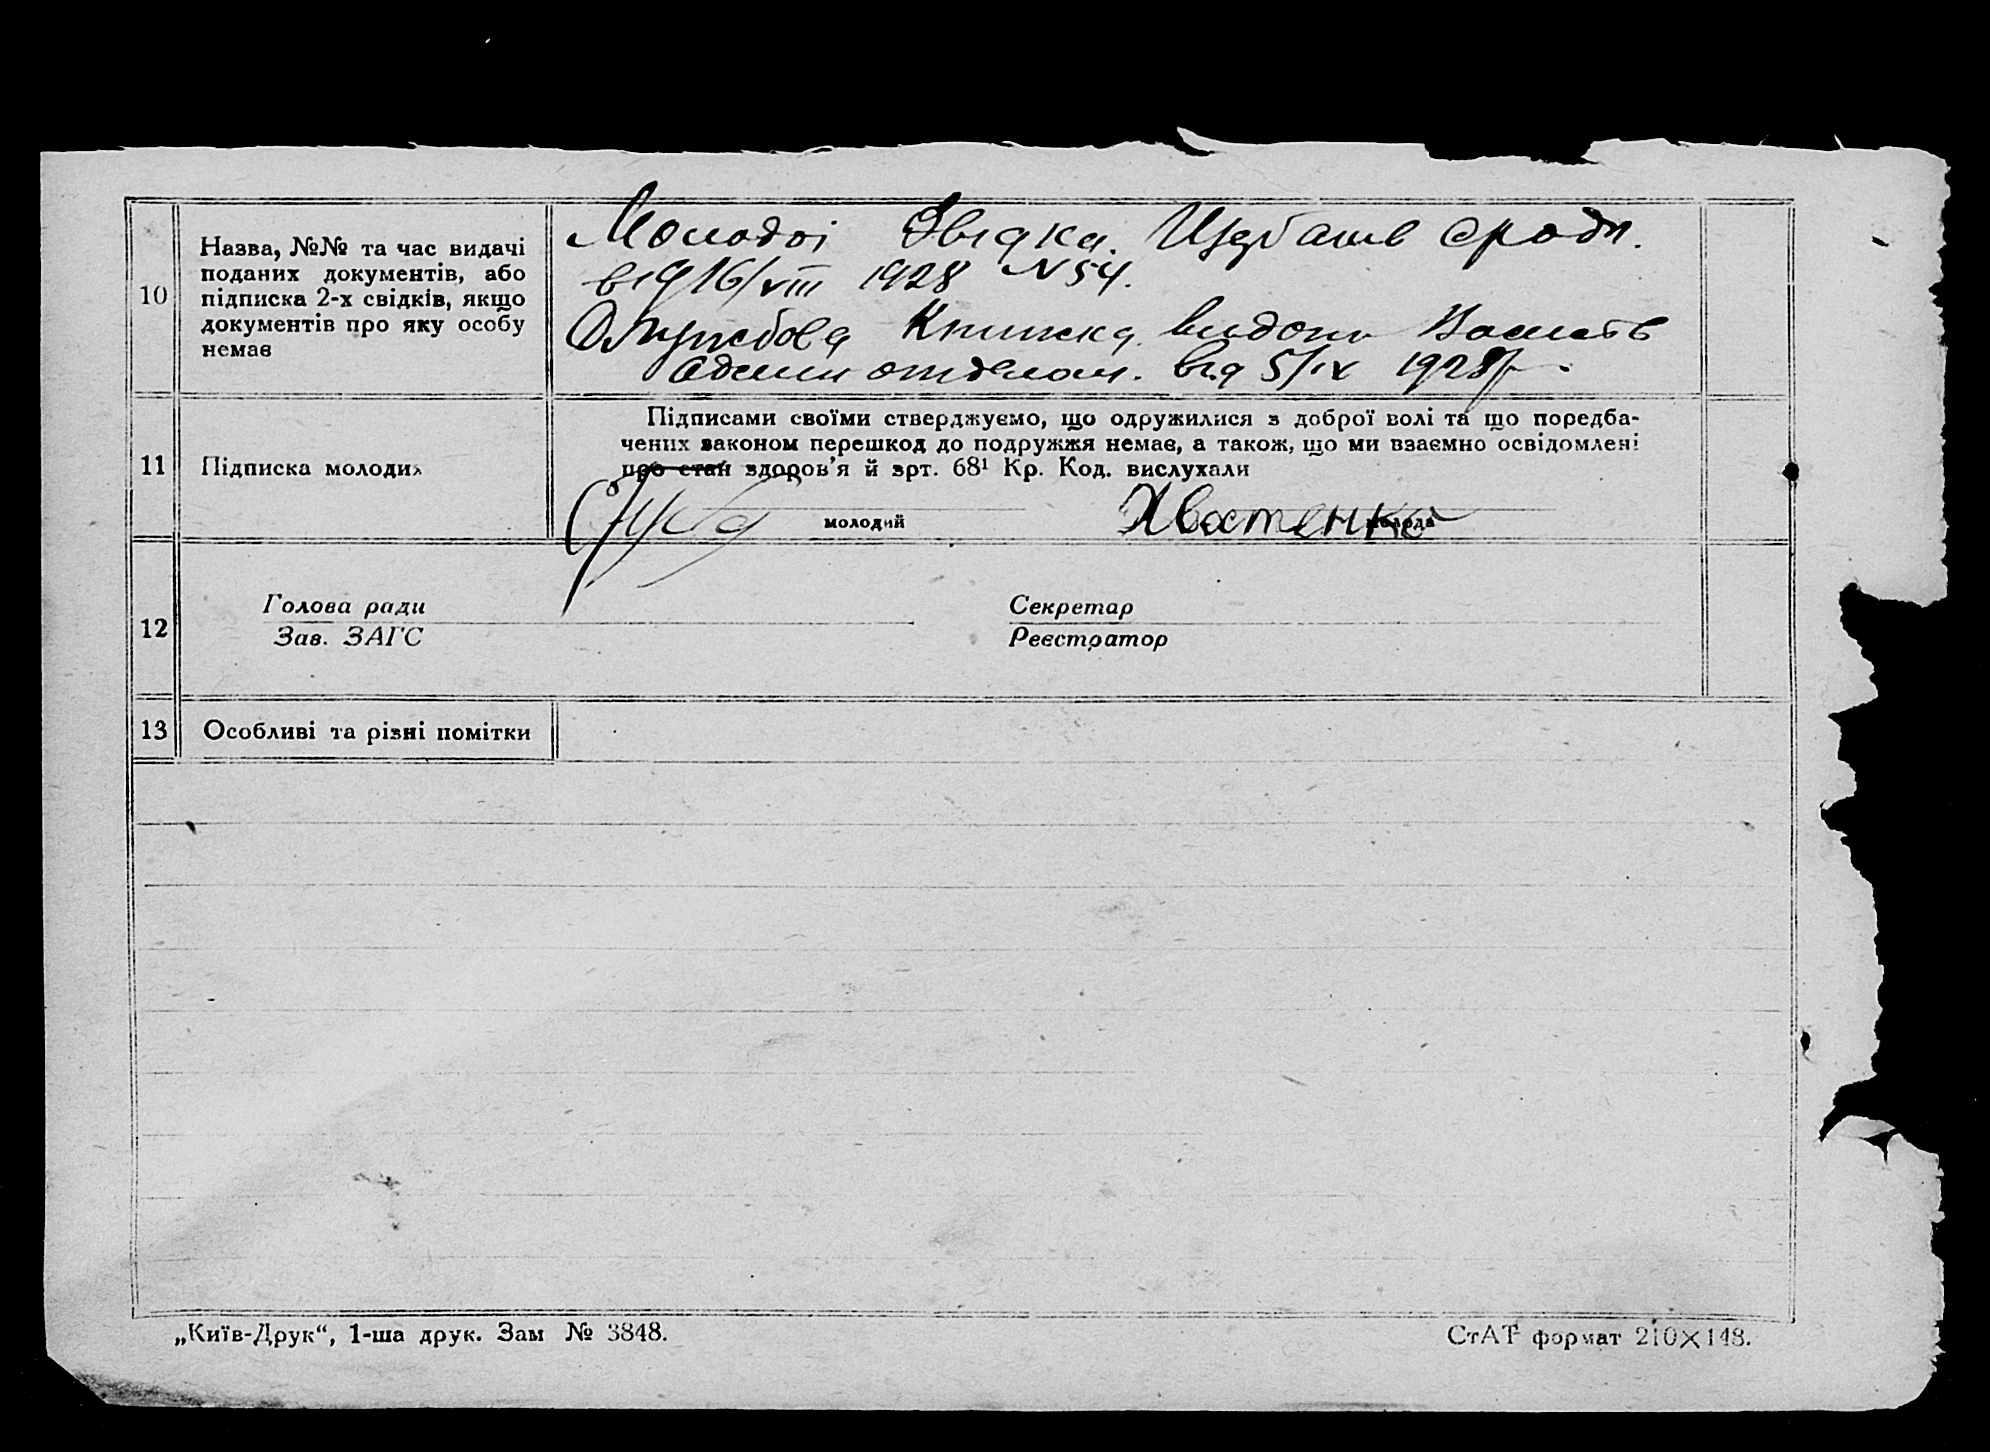 10
Назва, №№ та час видачі
поданих документів, або
підписка 2-х свідків, якщо
документів про яку особу
немає
Молодоі Звідка.
від 16/VIII 1928 N 54.
Службова Книжка видона
від 5/IX 1928
11
Підписка молодих
Підписами своїми стверджуємо, що одружилися з доброї волі та що поредба-
чених законом перешкод до подружжя немає, а також, що ми взаємно освідомлені
про стан здоров'я й арт. 68¹ Кр. Код. вислухали
молодий
Хвостенко
молода
12
Голова ради
Зав. ЗАГС
Секретар
Реєстратор
13
Особливі та різні помітки
„Київ-Друк“, 1-ша друк. Зам № 3848.
СтАТ формат 210×148.